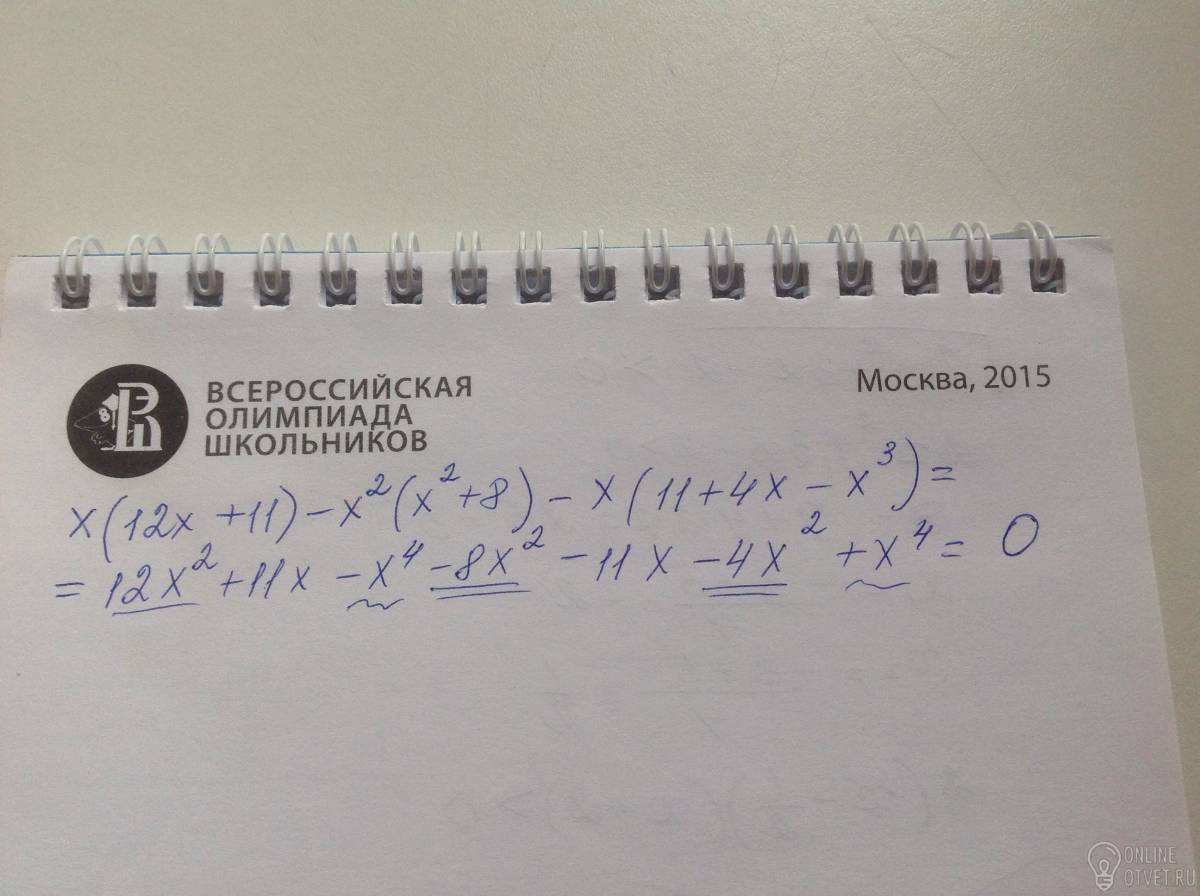 ВСЕРОССИЙСКАЯ
ОЛИМПИАДА
ШКОЛЬНИКОВ
Москва, 2015
x(12x+11)-x²(x²+8)-x(11+4x-x³)=
=12x²+11x-x⁴-8x²-11x-4x²+x⁴=0
ONLINE
OTVET.RU